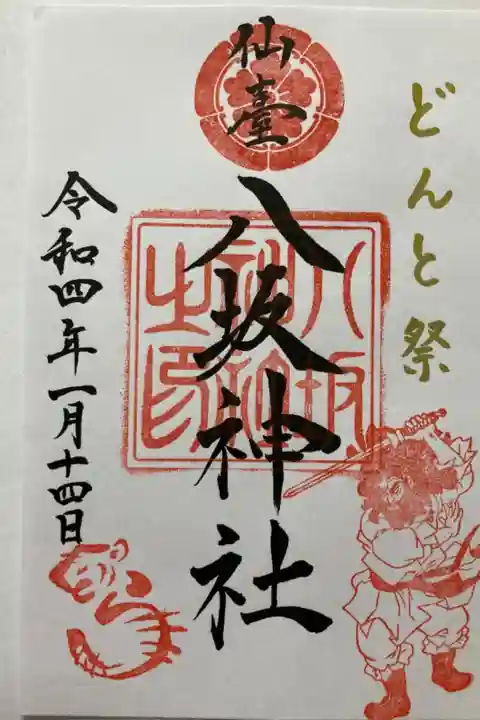 どんと祭
仙臺
八坂神社
八坂
神社
之印
令和四年一月十四日